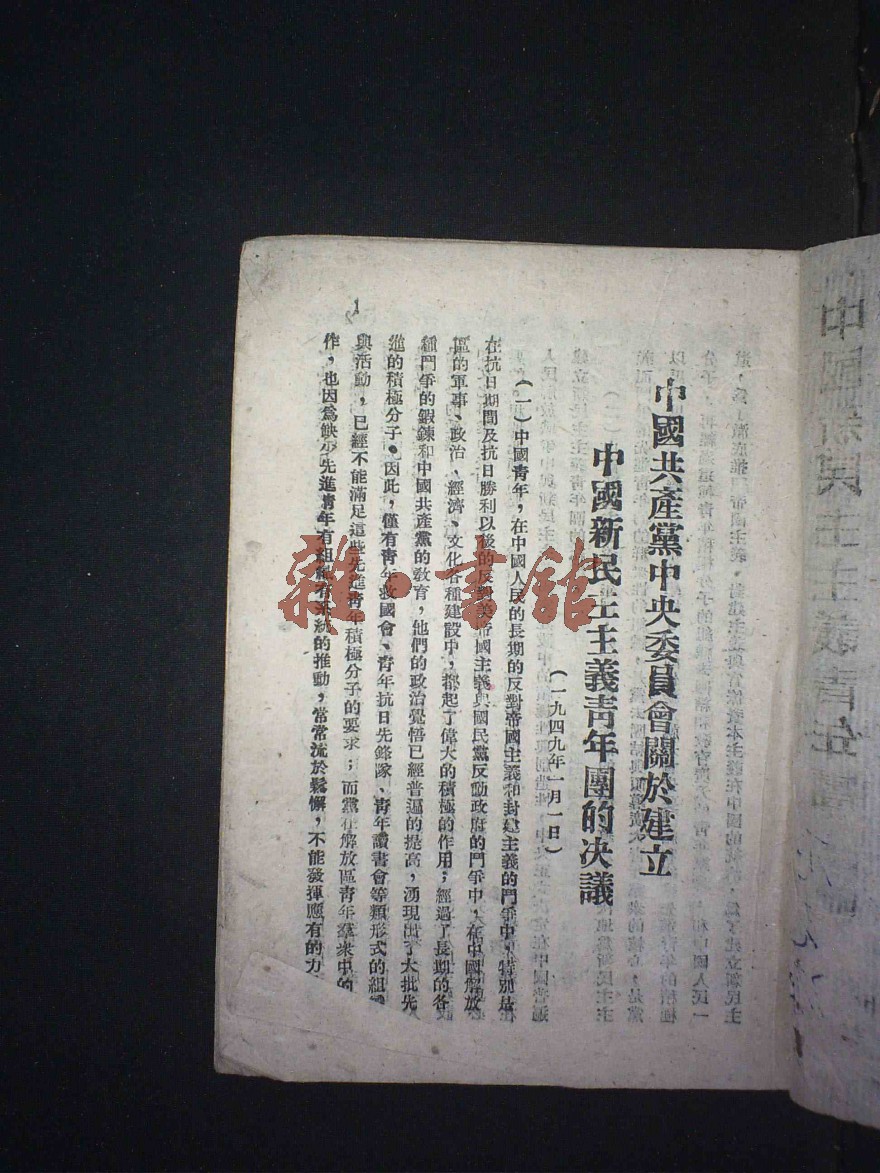 中國共產黨中央委員會關於建立
中國新民主主義青年團的决議
（一九四九年一月一日）
（一）中國靑年，在中國人民的長期的反對帝國主義和封建主義的鬥爭中，特別是
在抗日期間及抗日勝利以後的反對美帝國主義與國民黨反動政府的鬥爭中，在中國解放
區的軍事、政治、經濟、文化各種建設中，都起了偉大的積極的作用；經過了長期的各
種鬥爭的鍛鍊和中國共產黨的敎育，他們的政治覺悟已經普遍的提高，湧現出了大批先
進的積極分子。因此，僅有靑年救國會、靑年抗日先鋒隊、靑年讀書會等類形式的組織
與活動，已經不能滿足這些先進靑年積極分子的要求；而黨在解放區靑年羣衆中的
作，也因爲缺少先進靑年有組織有系統的推動，常常流於鬆懈，不能發揮應有的力
1
雜·書館